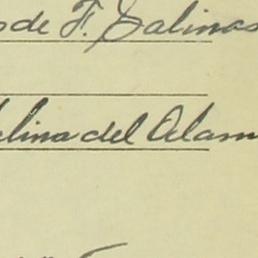 de F. Salinas
lina del Alam